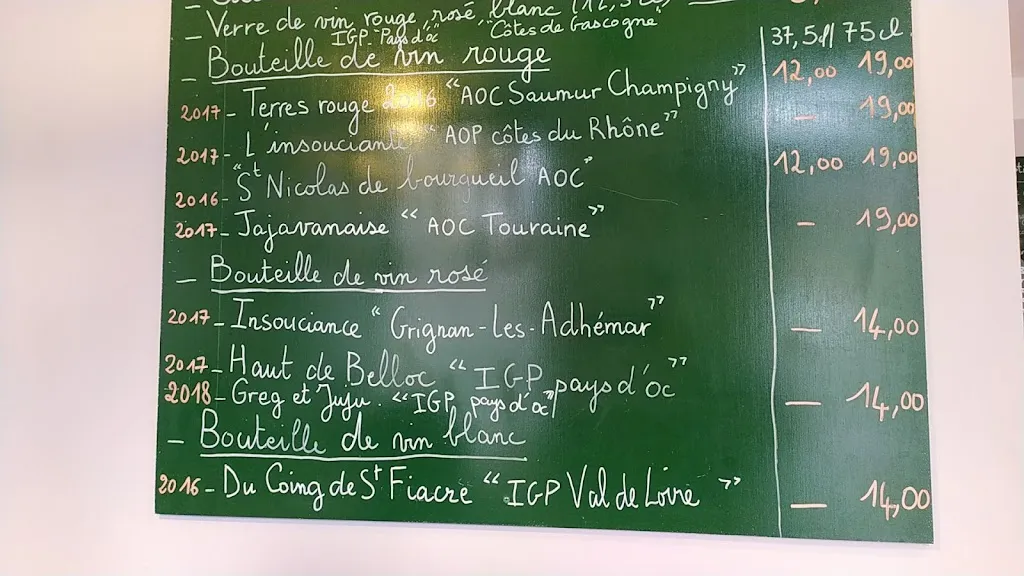 - Verre de vin rouge, rosé, blanc (12,5 cl)
IGP Pays d'oc "Côtes de Gascogne"
37,5cl // 75 cl.
- Bouteille de vin rouge 12,00 19,00
2017 - Terres rouge 2016 "AOC Saumur Champigny" - 19,00
2017 - L'insouciante "AOP côtes du Rhône" 12,00 19,00
2016 - "St Nicolas de bourgueil AOC"
2017 - Jajavanaise "AOC Touraine" - 19,00
- Bouteille de vin rosé
2017 - Insouciance "Grignan-Les-Adhémar" - 14,00
2017 - Haut de Belloc "IGP pays d'oc"
2018 - Greg et Juju. "IGP pays d'oc" - 14,00
- Bouteille de vin blanc
2016 - Du Coing de St Fiacre "IGP Val de Loire" - 14,00